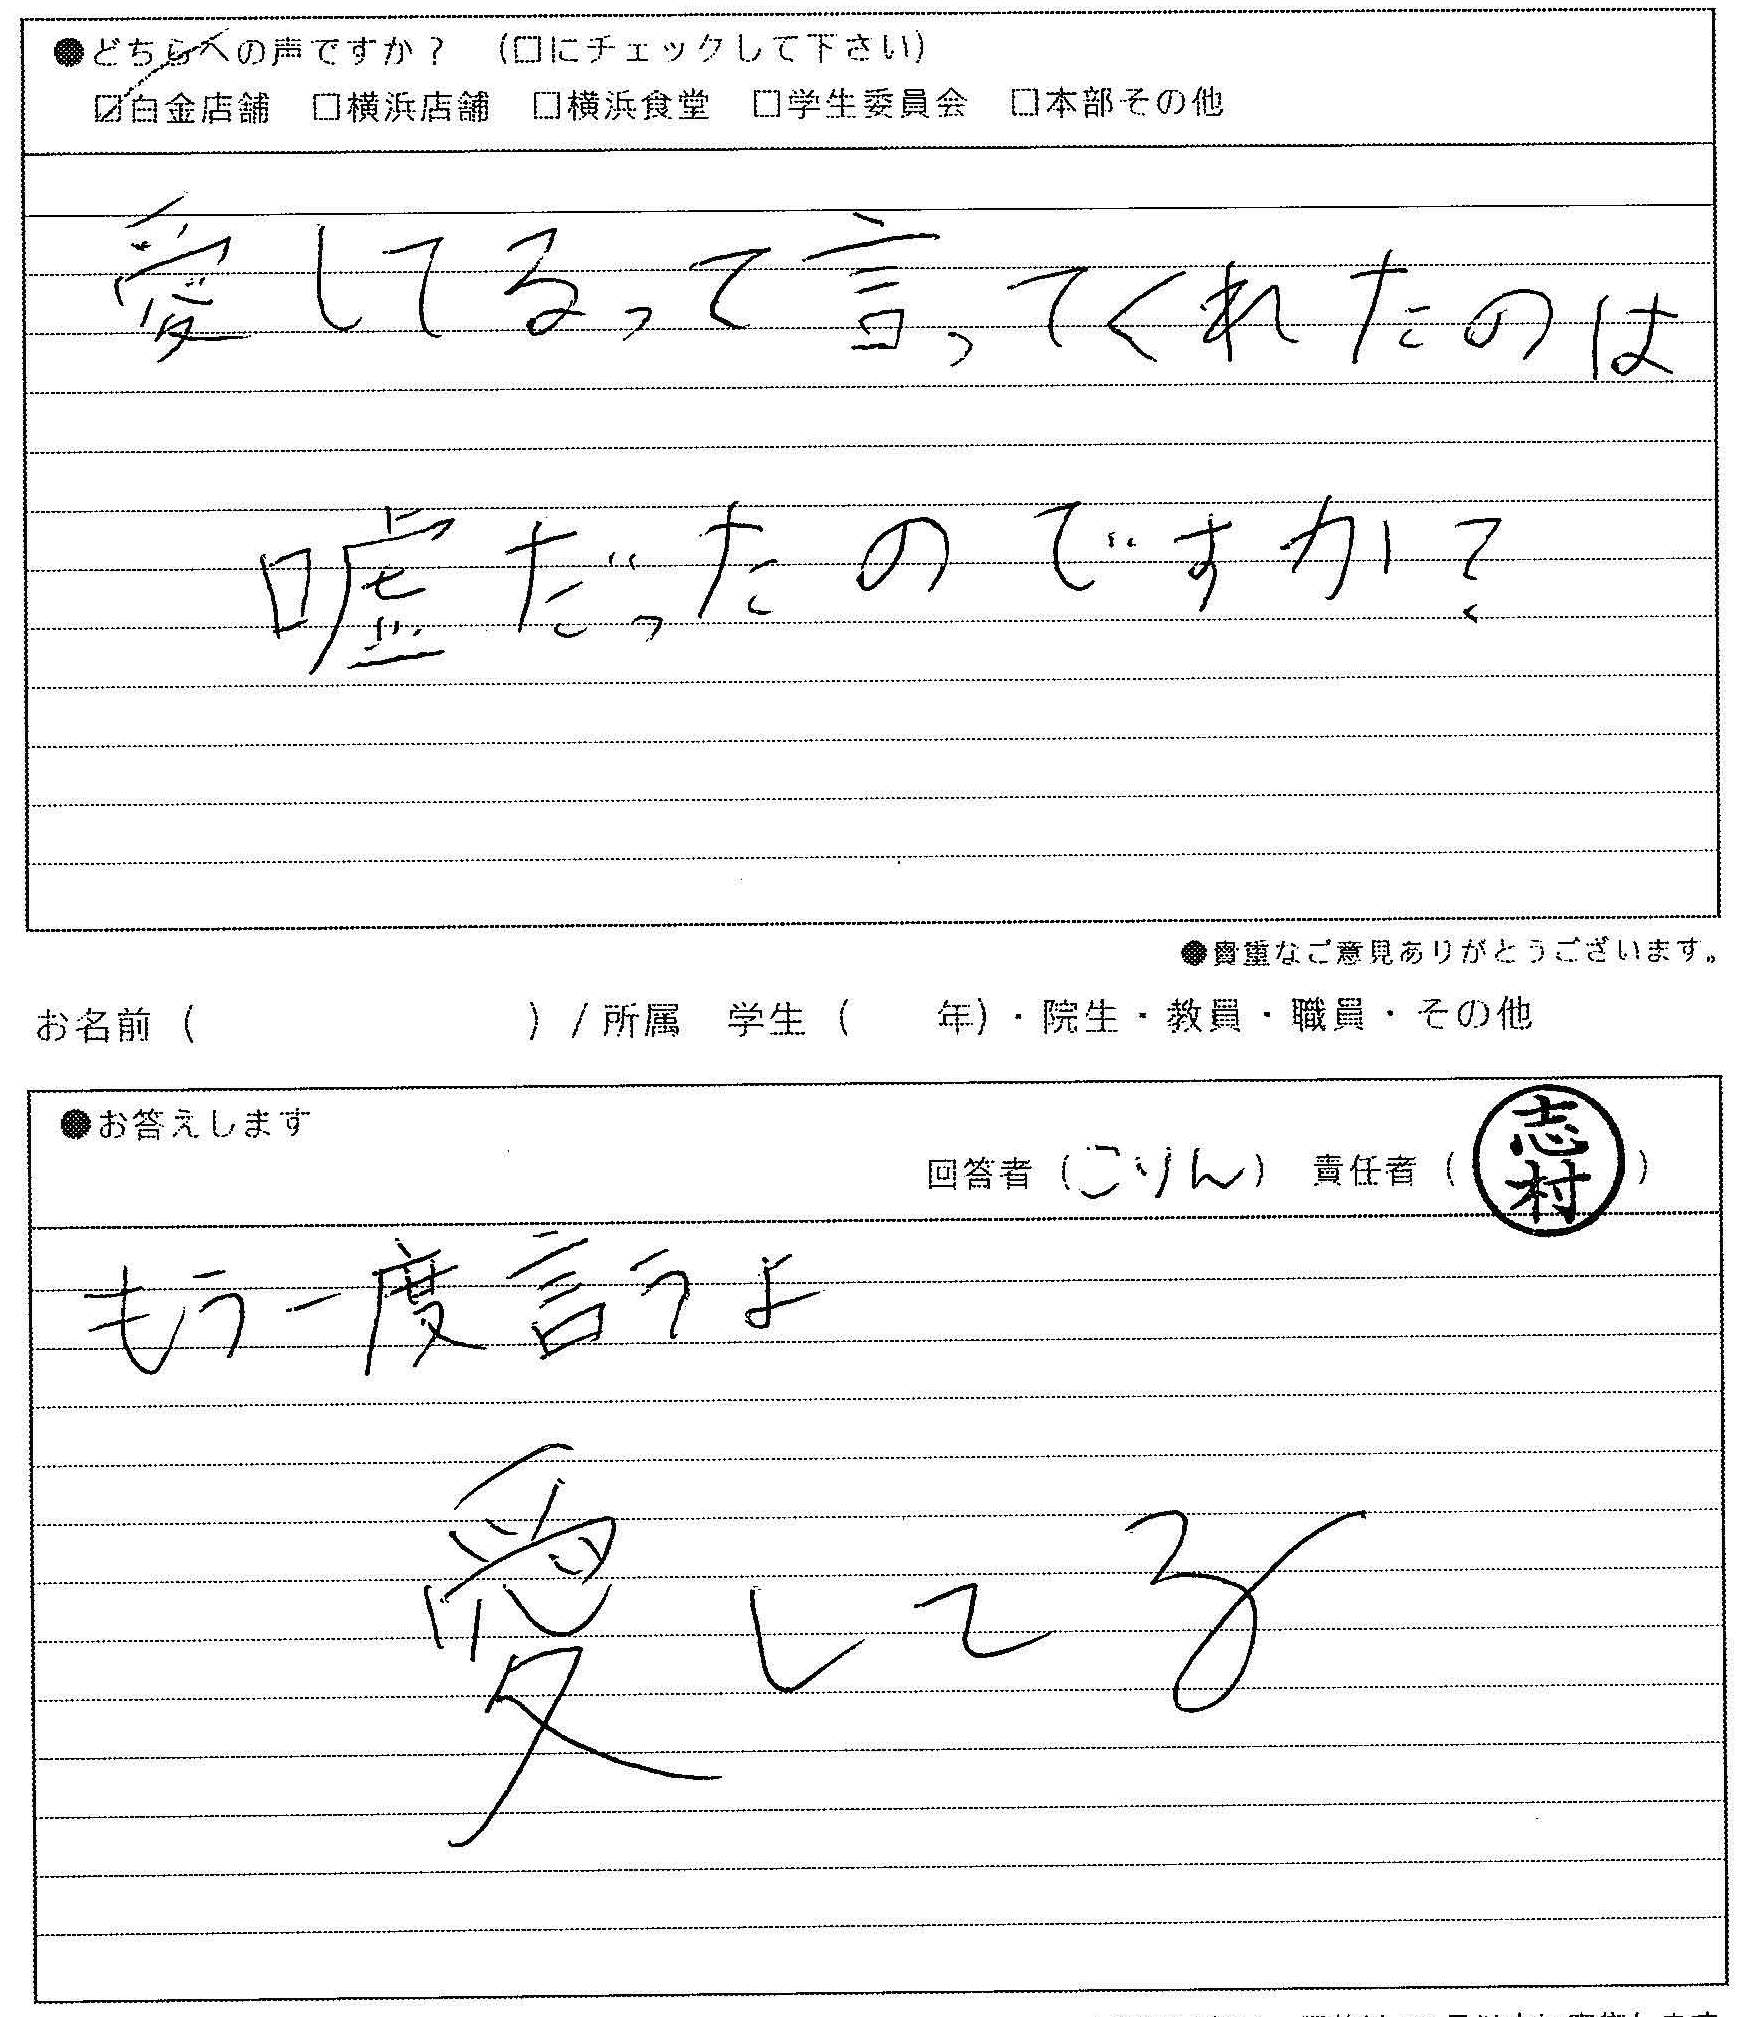 ●どちらへの声ですか？ （□にチェックして下さい）
☑白金店舗 □横浜店舗 □横浜食堂 □学生委員会 □本部その他
愛してるって言ってくれたのは
嘘だったのですか？
●貴重なご意見ありがとうございます。
お名前（ ）/所属 学生（ 年）・院生・教員・職員・その他
●お答えします
回答者（こりん） 責任者（志村）
もう一度言うよ
愛してる